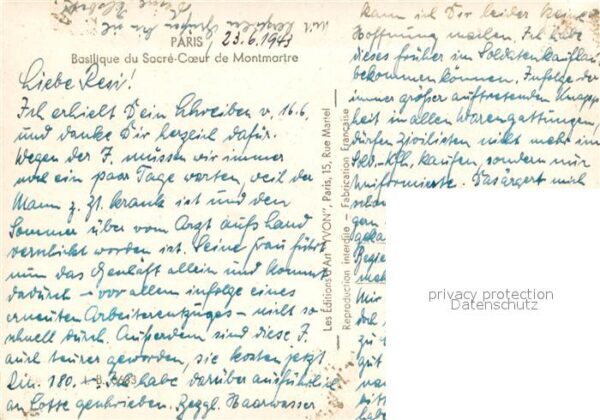 mit herzlichen Grüßen bin ich
Deine
PARIS 23.6.1943
Basilique du Sacré-Cœur de Montmartre
Liebe Resi!
Ich erhielt Dein Schreiben v. 16.6.
und danke Dir herzlich dafür.
Wegen der F. müssen wir immer
noch ein paar Tage warten, weil der
Mann z. Zt. krank ist und den
Sommer über vom Arzt aufs Land
verschickt worden ist. Seine Frau führt
nun das Geschäft allein und kommt
dadurch – vor allem infolge eines
erneuten Arbeiterentzuges – nicht so
schnell durch. Außerdem sind diese F.
auch teurer geworden, sie kosten jetzt
180.– Ich habe darüber ausführlich
an Lotte geschrieben. Bezgl. Haarwasser
Les Éditions d'Art "YVON", Paris, 15, Rue Martel
Reproduction interdite — Fabrication Française
kann ich Dir leider keine
Hoffnung machen. Ich habe
dieses früher im Soldatenkaufhaus
bekommen können. Infolge der
immer größer auftretenden Knapp
heit in allen Warengattungen,
dürfen Zivilisten nicht mehr im
kaufen, sondern nur
Uniformierte. Das ärgert mich
privacy protection
Datenschutz